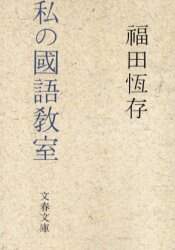 福田恆存
私の國語教室
文春文庫